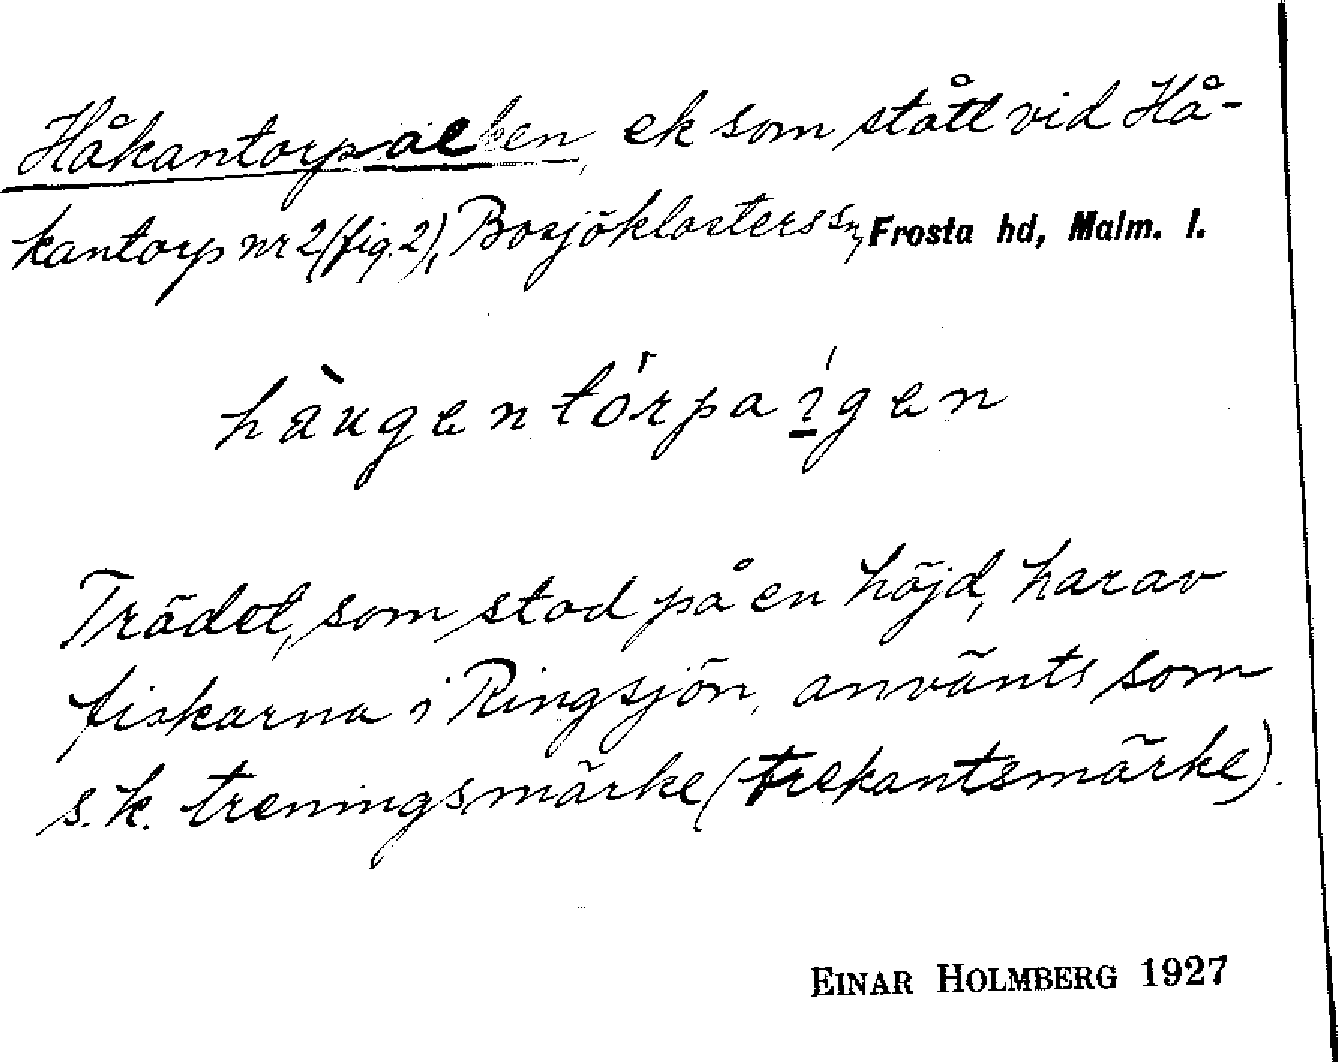 Håkantorpaeken, ek som stått vid Hå-
kantorp nr 2 (fig. 2), Bosjöklosters sn, Frosta hd, Malm. l.
hàugen tórpa ígen
Trädet, som stod på en höjd, har av
fiskarna i Ringsjön, använts som
s.k. treningsmärke (trekantsmärke).
EINAR HOLMBERG 1927